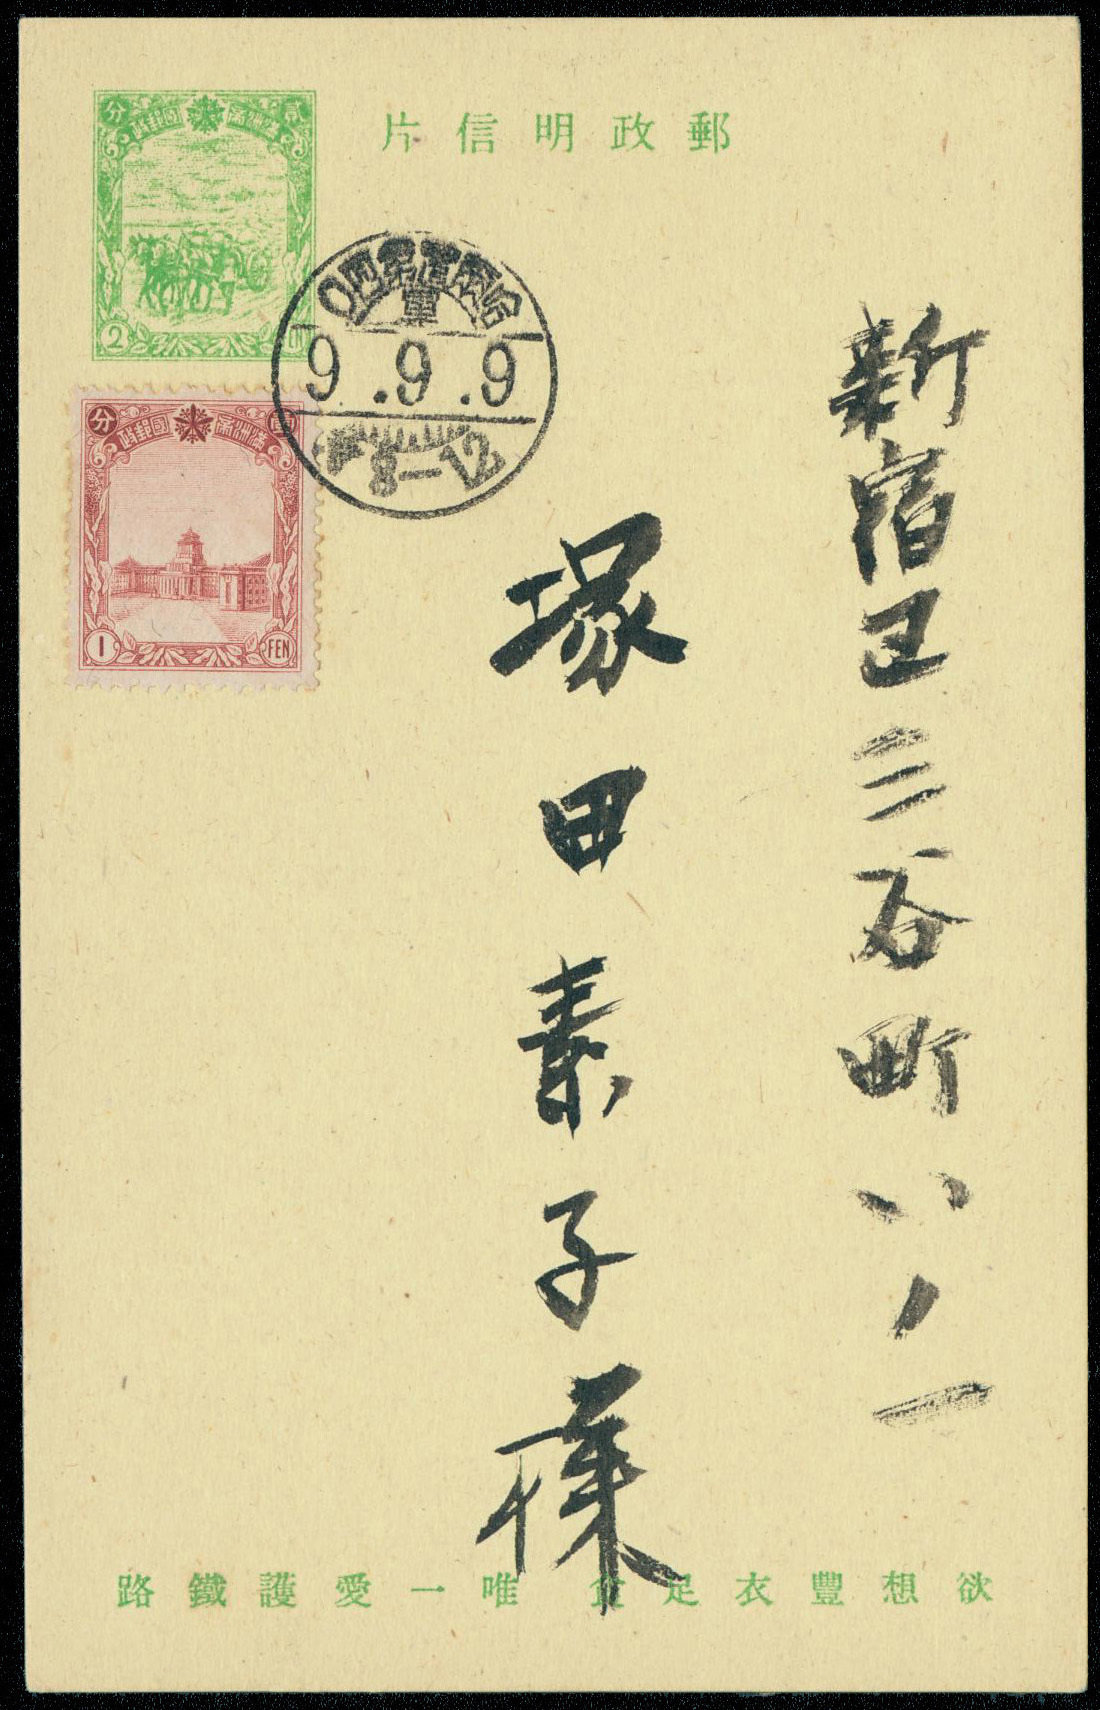 郵政明信片
分 滿洲國郵政 貳
2
分 滿洲國郵政
1 FEN
9.9.9
8-12
新宿区三谷町ハノ一
塚田素子様
欲想豐衣足食 唯一愛護鐵路